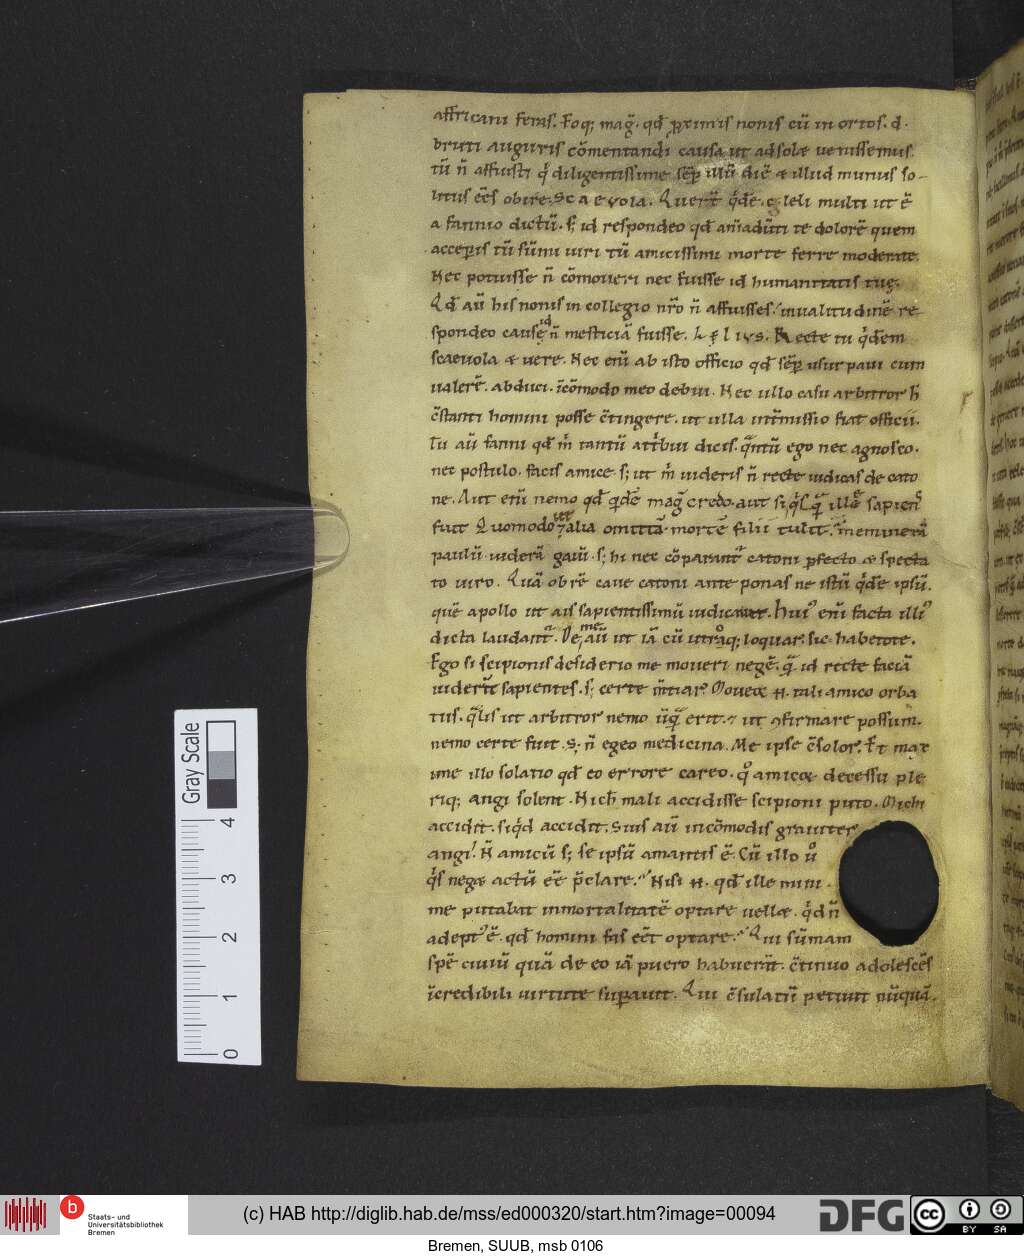 affricani feras. Eoq; mag̃. qđ ꝓximis nonis cũ in ortos. d.
bruti auguris cõmentandi causa ut adsolæ uenissemus.
tũ ñ affuisti q̇ diligentissime sẽp illũ diẽ & illud munus so-
litus eẽs obire. Scaevola. Querũt q̇dẽ. ç. leli multi ut ẽ
a fannio dictũ. s; id respondeo qđ anĩaduti te dolorẽ quem
acceperis tũ sũmi uiri tũ amicissimi morte ferre moderate.
Nec potuisse ñ cõmoueri nec fuisse id humanitatis tuę.
Qđ aũ his nonis in collegio nr̃o ñ affuisses. inualitudinẽ re-
spondeo causę id ñ mesticiã fuisse. Lęlivs. Recte tu q̇dem
scaeuola & uere. Nec enĩ ab isto officio qđ sẽp usurpaui cum
ualerẽ. abduci. ĩcõmodo meo debui. Nec ullo casu arbitror h̃
c̃stanti homini posse c̃tingere. ut ulla int̃missio fiat officii.
Tu aũ fanni qđ m̃ tantũ att̃bui dicis. q̃ntũ ego nec agnosco.
nec postulo. facis amice. s; ut m̃ uideris ñ recte iudicas de cato
ne. Aut enĩ nemo qđ q̇dẽ mag̃ credo. aut si q̇sq̃ ille sapiens
fuit Quomodo ut alia omittã. mortẽ filii tulit. memineram
paulũ. uiderã gaiũ. s; hi nec cõparant catoni pfecto & specta
to uiro. Quã obrẽ caue catoni anteponas ne istũ q̇dẽ ipsũ.
quẽ apollo ut ais sapientissimũ iudicauit. Hui᾿ enĩ facta illi᾿
dicta laudant. De me aũ ut iã cũ utroq; loquar. sic habetote.
Ego si scipionis desiderio me moueri negẽ. q̃ id recte faciã
uiderĩt sapientes. s; certe m̃tiar. Moueor .n. tali amico orba
tus. q̃lis ut arbitror nemo ũq̃ erit. & ut ꝯfirmare possum.
nemo certe fuit. S; ñ egeo medicina. Me ipse c̃solor. Et max
ime illo solatio qđ eo errore careo. q̊ amicoꝝ decessu ple
riq; angi solent. Nich̃ mali accidisse scipioni puto. Michi
accidit. siq̇d accidit. Suis aũ incõmodis grauiter
angi. ñ amicũ s; se ipsũ amantis ẽ. Cũ illo ů
q̇s negæ actũ eẽ p̃clare. Nisi .n. qđ ille mini
me putabat inmortalitatẽ optare uellæ. q̇dñ
adept᾿ ẽ. qđ homini fas eẽt optare. Qui sũmam
spẽ ciuiũ quã de eo iã puero habuerãt. c̃tinuo adolescẽs
ĩcredibili uirtute supauit. Qui c̃sulatũ petiuit nũquã.
Gray Scale
0 1 2 3 4
b Staats- und
Universitätsbibliothek
Bremen
(c) HAB http://diglib.hab.de/mss/ed000320/start.htm?image=00094
DFG
cc BY SA
Bremen, SUUB, msb 0106